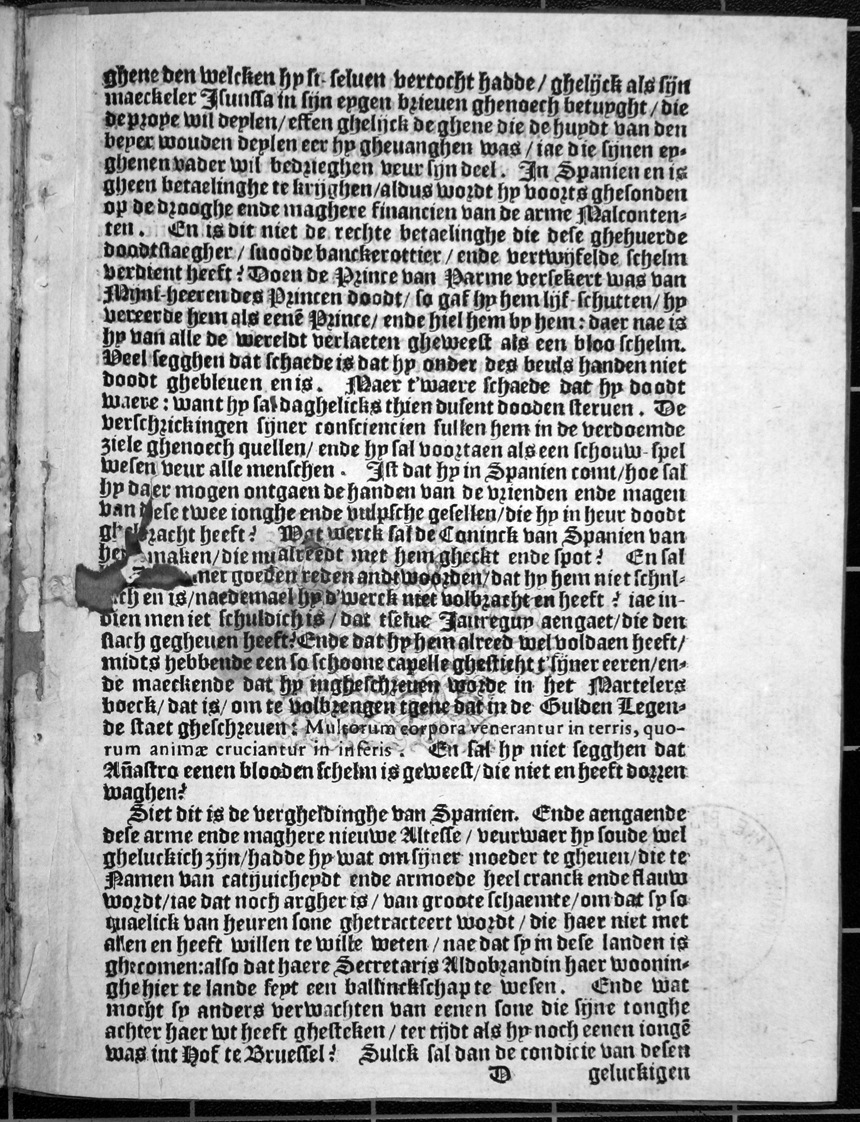 ghene den welcken hy si-seluen vertocht hadde / ghelijck als sijn
maeckeler Isunssa in sijn eygen brieuen ghenoech betuyght / die
de prope wil deylen / effen ghelijck de ghene die de huydt van den
beyer wouden deylen eer hy gheuanghen was / iae die sijnen ey-
ghenen vader wil bedrieghen veur sijn deel. In Spanien en is
gheen betaelinghe te krijghen / aldus wordt hy voorts ghesonden
op de drooghe ende maghere financien van de arme Malconten-
ten. En is dit niet de rechte betaelinghe die dese ghehuerde
doodtslaegher / snoode banckerottier / ende vertwijfelde schelm
verdient heeft? Doen de Prince van Parme versekert was van
Mijnt-heeren des Princen doodt / so gaf hy hem lijf-schutten / hy
vereerde hem als eenē Prince / ende hiel hem by hem: daer nae is
hy van alle de wereldt verlaeten gheweest als een bloo schelm.
Veel segghen dat schaede is dat hy onder des beuls handen niet
doodt ghebleuen en is. Maer t'waere schaede dat hy doodt
waere: want hy sal daghelicks thien dusent dooden steruen. De
verschrickingen sijner consciencien sullen hem in de verdoemde
ziele ghenoech quellen / ende hy sal voortaen als een schouw-spel
wesen veur alle menschen. Ist dat hy in Spanien comt / hoe sal
hy daer mogen ontgaen de handen van de vrienden ende magen
van dese twee ionghe ende vulpsche gesellen / die hy in heur doodt
ghebracht heeft? Wat werck sal de Coninck van Spanien van
maken / die nu alreedt met hem gheckt ende spot? En sal
goeden reden andtwoorden / dat hy hem niet schul-
en is / naedemael hy d'werck niet volbracht en heeft? iae in-
dien men iet schuldich is / dat tselue Jaureguy aengaet / die den
slach gegheuen heeft? Ende dat hy hem alreed wel voldaen heeft /
midts hebbende een so schoone capelle ghesticht t'sijner eeren / en-
de maeckende dat hy ingheschreuen worde in het Martelers
boeck / dat is / om te volbrengen tgene dat in de Gulden Legen-
de staet gheschreuen: Multorum corpora venerantur in terris, quo-
rum animæ cruciantur in inferis. En sal hy niet segghen dat
Añastro eenen blooden schelm is geweest / die niet en heeft dorren
waghen?
Siet dit is de vergheldinghe van Spanien. Ende aengaende
dese arme ende maghere nieuwe Altesse / veurwaer hy soude wel
gheluckich zijn / hadde hy wat om sijner moeder te gheuen / die te
Namen van catijuicheydt ende armoede heel cranck ende flauw
wordt / iae dat noch argher is / van groote schaemte / om dat sy so
quaelick van heuren sone ghetracteert wordt / die haer niet met
allen en heeft willen te wille weten / nae dat sy in dese landen is
ghecomen: also dat haere Secretaris Aldobrandin haer woonin-
ghe hier te lande seyt een ballinckschap te wesen. Ende wat
mocht sy anders verwachten van eenen sone die sijne tonghe
achter haer wt heeft ghesteken / ter tijdt als hy noch eenen iongē
was int Hof te Bruessel? Sulck sal dan de condicie van desen
D geluckigen